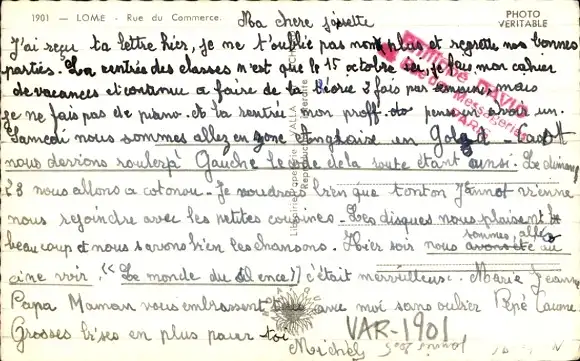 1901 - LOME - Rue du Commerce.
PHOTO VERITABLE
Ma chere josette
J'ai reçu ta lettre hier, je ne t'oublie pas non plus et regrette nos bonnes
parties. La rentrée des classes n'est que le 15 octobre ici, je fais mon cahier
de vacances et continue a faire de la 3 fois par semaine mais
je ne fais pas de piano. et la rentrée mon proff. do pense avoir un.
Samedi nous sommes allez en zone Anglaise un
nous devrions rouler Gauche le code de la route étant ainsi. Le dimanche
28 nous allons a cotonou. Je voudrais bien que tonton Jeannot vienne
nous rejoindre avec les petites cousines. Les disques nous plaisent
beaucoup et nous savons bien les chansons. Hier soir nous sommes allés au
cine voir, "Le monde du Silence" c'était merveilleux. Marie Jeanne
Papa Maman vous embrassent avec moi sans oublier Pépé
Grosses bises en plus pour toi
Michèle
VAR-1901